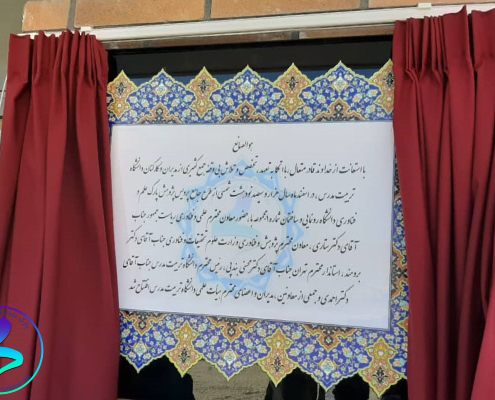 هوالصانع
با استعانت از خداوند قادر متعال، با اتکا به تعهد، تخصص و تلاش بی وقفه جمع کثیری از مدیران و کارکنان دانشگاه
تربیت مدرس، در اسفند ماه سال هزار و سیصد و نود و هشت شمسی از طرح جامع پردیس پژوهش پارک علم و
فناوری دانشگاه رونمایی و ساختمان شماره ۱ مجموعه با حضور معاون محترم علمی و فناوری ریاست جمهور جناب
آقای دکتر ستاری، معاون محترم پژوهش و فناوری وزارت علوم تحقیقات و فناوری جناب آقای دکتر
برومند، استاندار محترم تهران جناب آقای دکتر محسنی بندپی، رییس محترم دانشگاه تربیت مدرس جناب آقای
دکتر احمدی و جمعی از معاونین، مدیران و اعضای محترم هیات علمی دانشگاه تربیت مدرس افتتاح شد